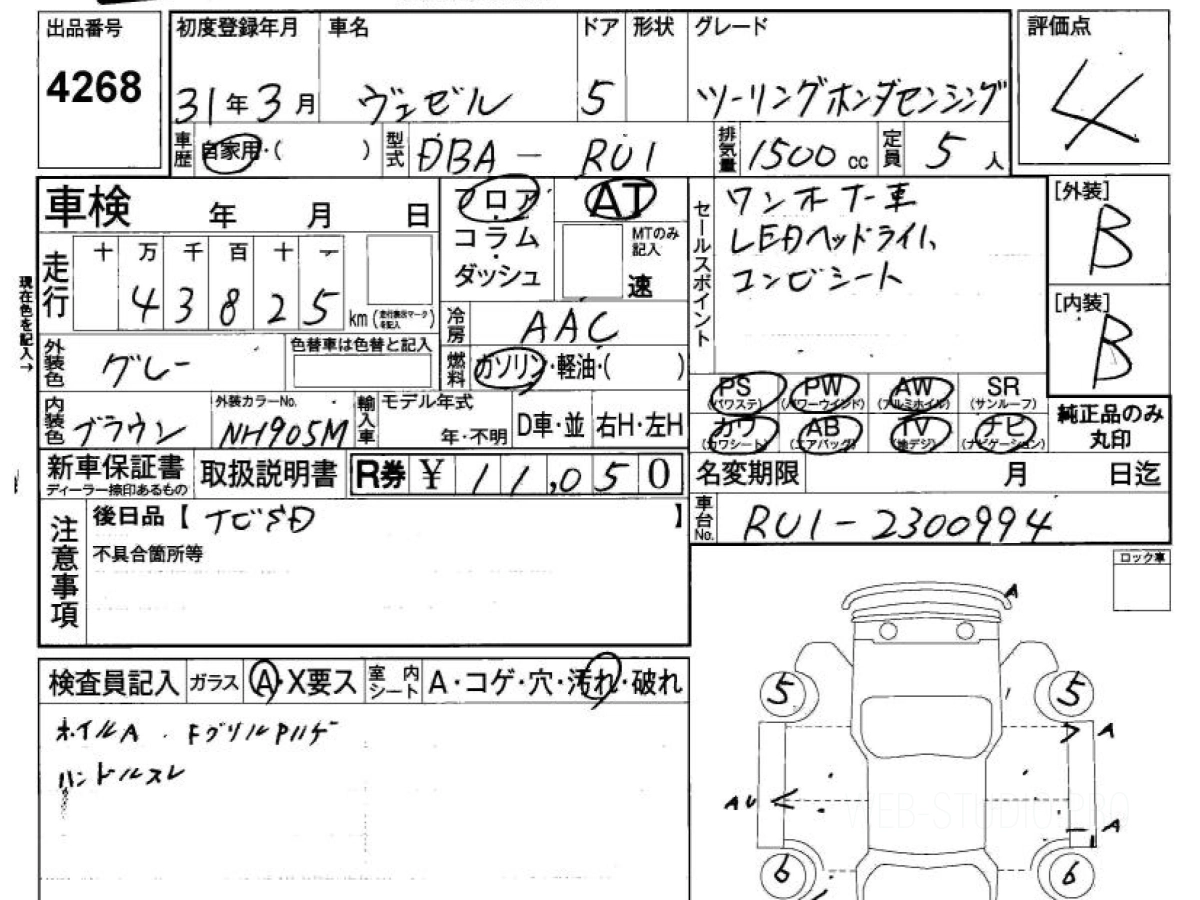 出品番号 初度登録年月 車名 ドア 形状 グレード 評価点
4268 31年3月 ヴェゼル 5 ツーリングホンダセンシング 4
車歴 自家用・( ) 型式 DBA - RU1 排気量 1500 cc 定員 5人
車検 年 月 日
フロア・コラム・ダッシュ
AT
MTのみ記入
速
セールスポイント
ワンオーナー車
LEDヘッドライト、
コンビシート
[外装]
B
[内装]
B
現在色を記入→
走行 十 万 千 百 十 一
43825 km (走行表示マークを記入)
冷房 AAC
外装色 グレー 色替車は色替と記入
燃料 ガソリン・軽油・( )
PS (パワステ) PW (パワーウインド) AW (アルミホイル) SR (サンルーフ)
カワ (カワシート) AB (エアバッグ) TV (地デジ) ナビ (ナビゲーション)
純正品のみ丸印
内装色 ブラウン 外装カラーNo. NH905M 輸入車 モデル年式 年・不明 D車・並 右H・左H
新車保証書 ディーラー捺印あるもの 取扱説明書 R券 ¥ 11,050
名変期限 月 日迄
車台No. RU1-2300994
注意事項
後日品【 ナビSD 】
不具合箇所等
ロック車
検査員記入 ガラス A・X要ス 室内シート A・コゲ・穴・汚れ・破れ
ホイルA . FグリルPハゲ
ハンドルスレ
A
5 5
A
AU
A
6 6
WEB-STUDIO.PRO